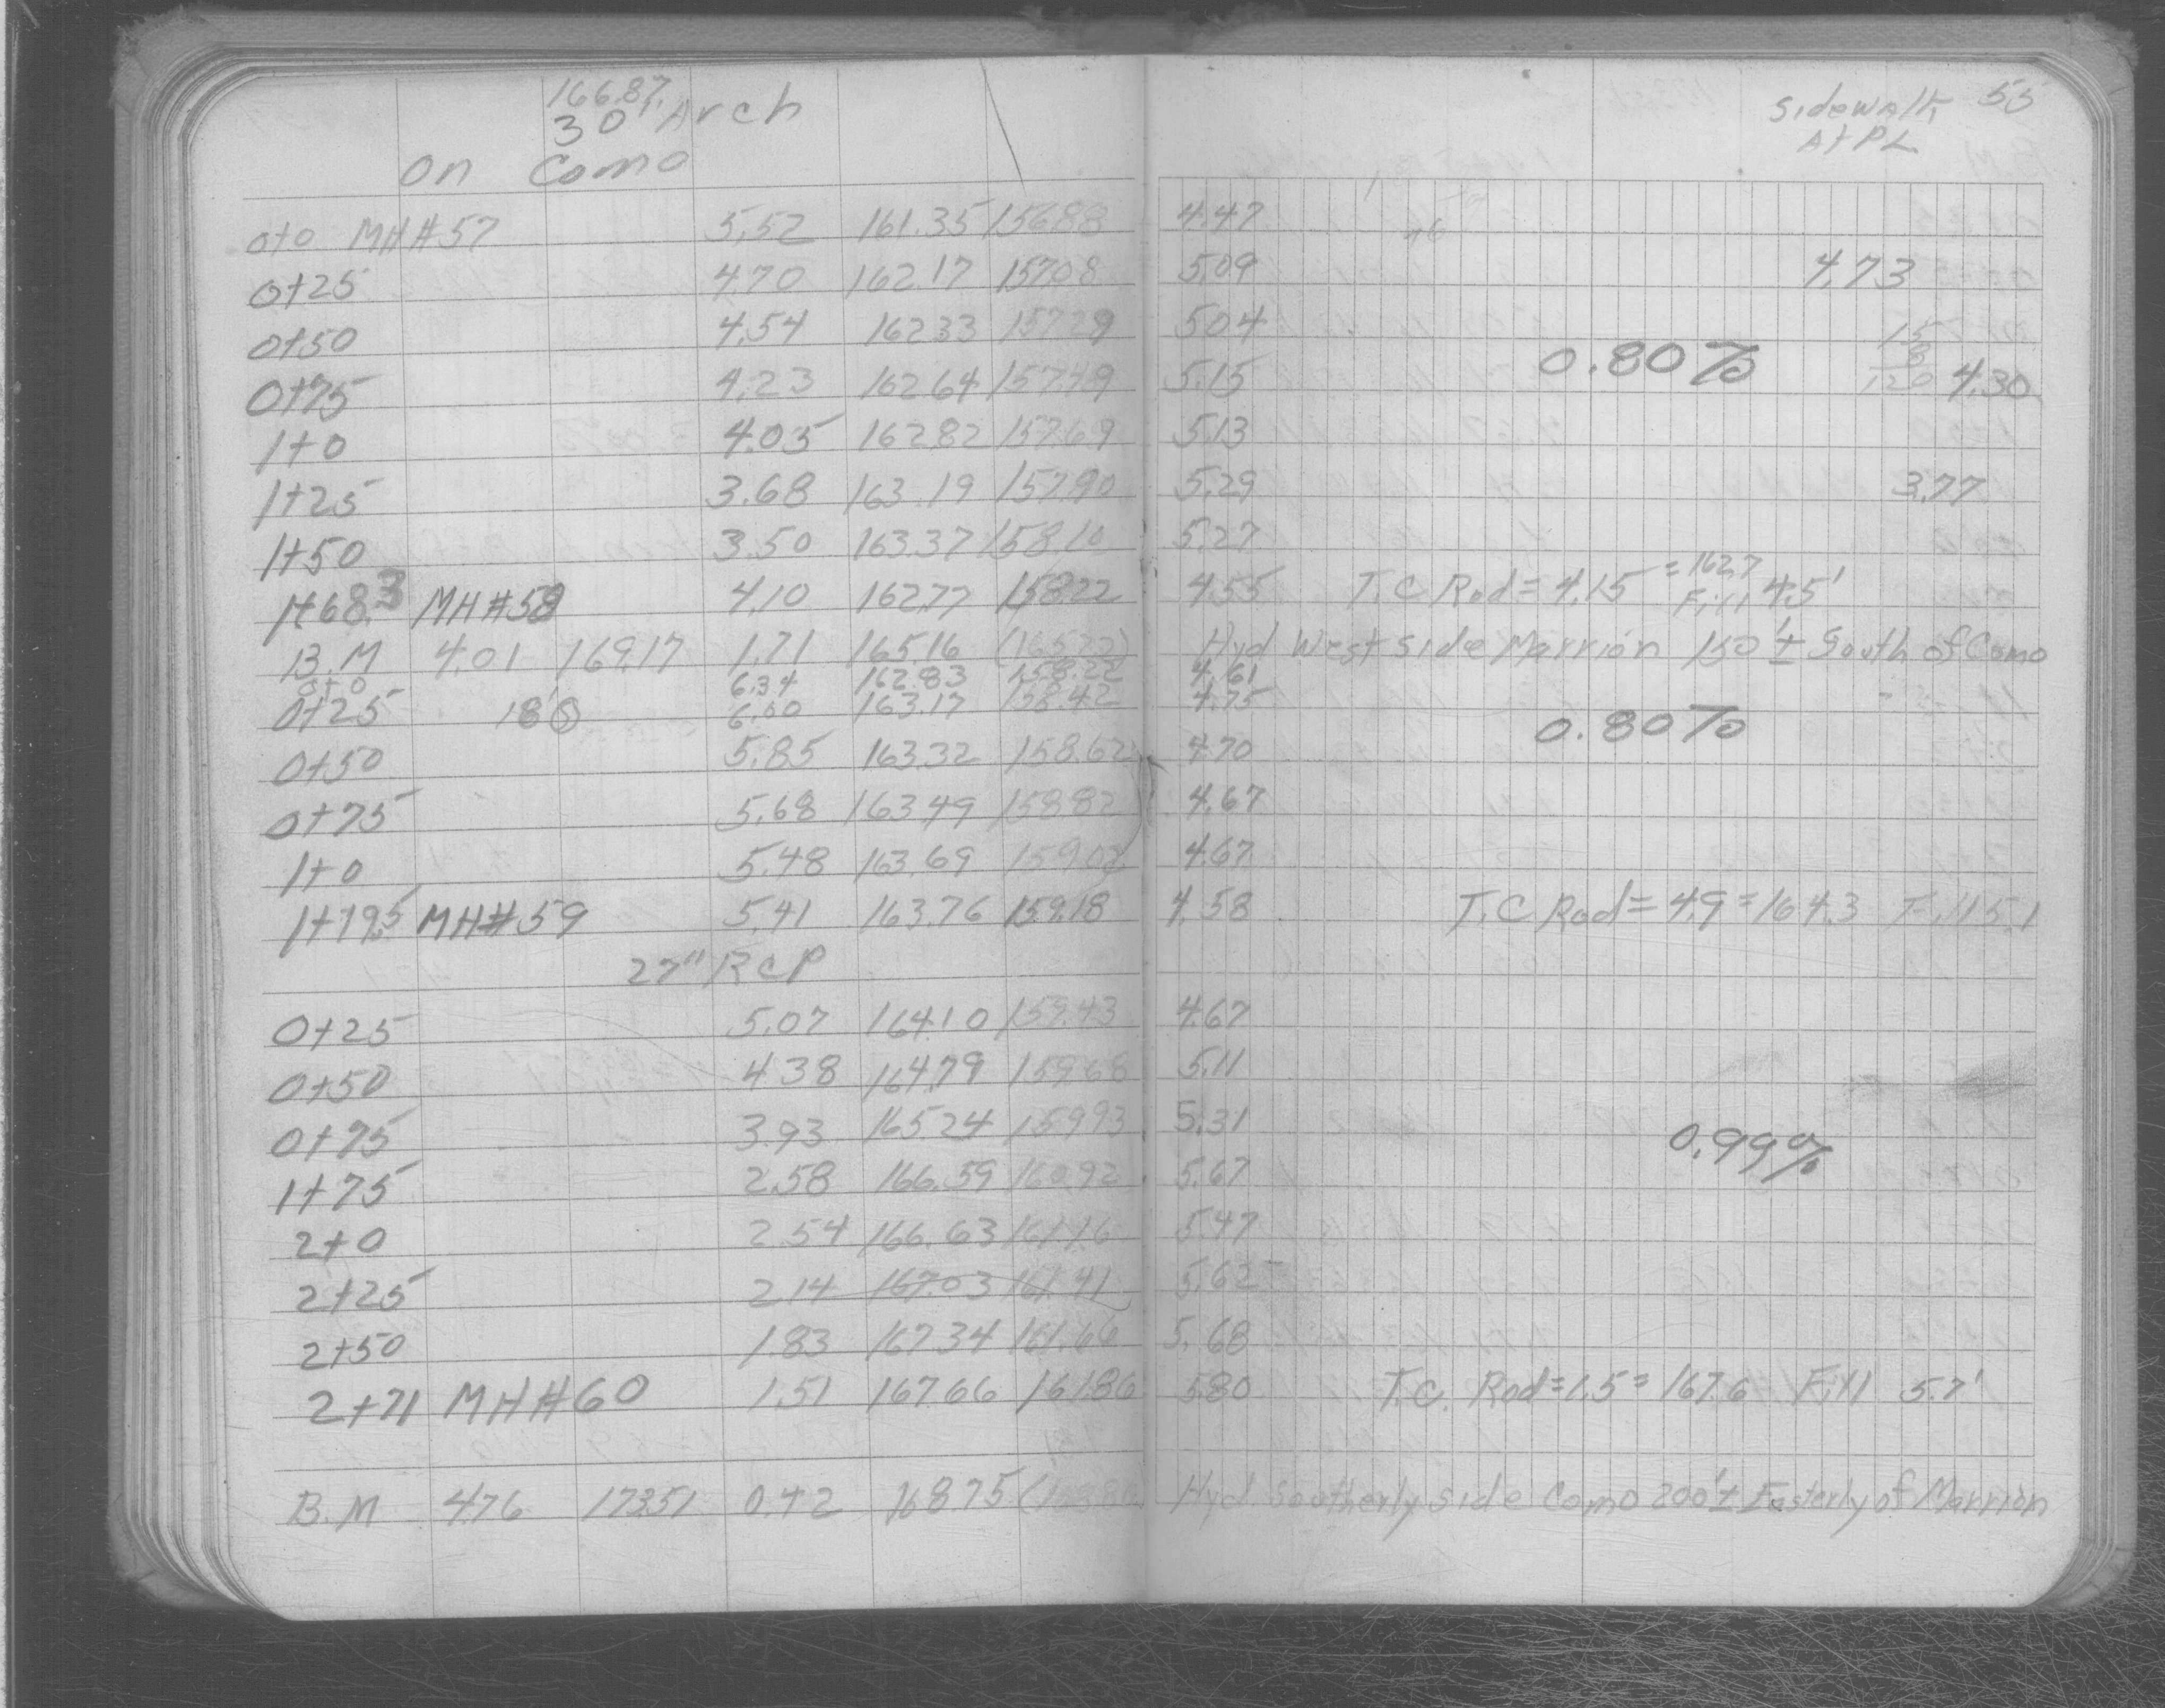 166.87 Sidewalk 55
30" Arch At PL
On Como
0+0 MH#57 5.52 161.35 156.88 4.47
0+25 4.70 162.17 157.08 5.09 4.73
0+50 4.54 162.33 157.29 5.04 15
0.80% 8
0+75 4.23 162.64 157.49 5.15 120 4.30
1+0 4.05 162.82 157.69 5.13
1+25 3.68 163.19 157.90 5.29 3.77
1+50 3.50 163.37 158.10 5.27
1+68.3 MH#58 4.10 162.77 158.22 4.55 T.C Rod = 4.15 = 162.7 Fill 4.5'
B.M 4.01 169.17 1.71 165.16 Hyd West side Marrion 150'± South of Como
0+0 6.34 162.83 158.22 4.61
0+25 18' S 6.00 163.17 158.42 4.75
0.80%
0+50 5.85 163.32 158.62 4.70
0+75 5.68 163.49 158.82 4.67
1+0 5.48 163.69 159.02 4.67
1+19.5 MH#59 5.41 163.76 159.18 4.58 T.C Rod = 4.9 = 164.3 Fill 5.1
27" RCP
0+25 5.07 164.10 159.43 4.67
0+50 4.38 164.79 159.68 5.11
0+75 3.93 165.24 159.93 5.31 0.99%
1+75 2.58 166.59 160.92 5.67
2+0 2.54 166.63 161.16 5.47
2+25 2.14 167.03 161.41 5.62
2+50 1.83 167.34 161.66 5.68
2+71 MH#60 1.51 167.66 161.86 5.80 T.C. Rod = 1.5 = 167.6 Fill 5.7'
B.M 4.76 173.51 0.42 168.75 Hyd. Southerly side Como 200'± Easterly of Marrion